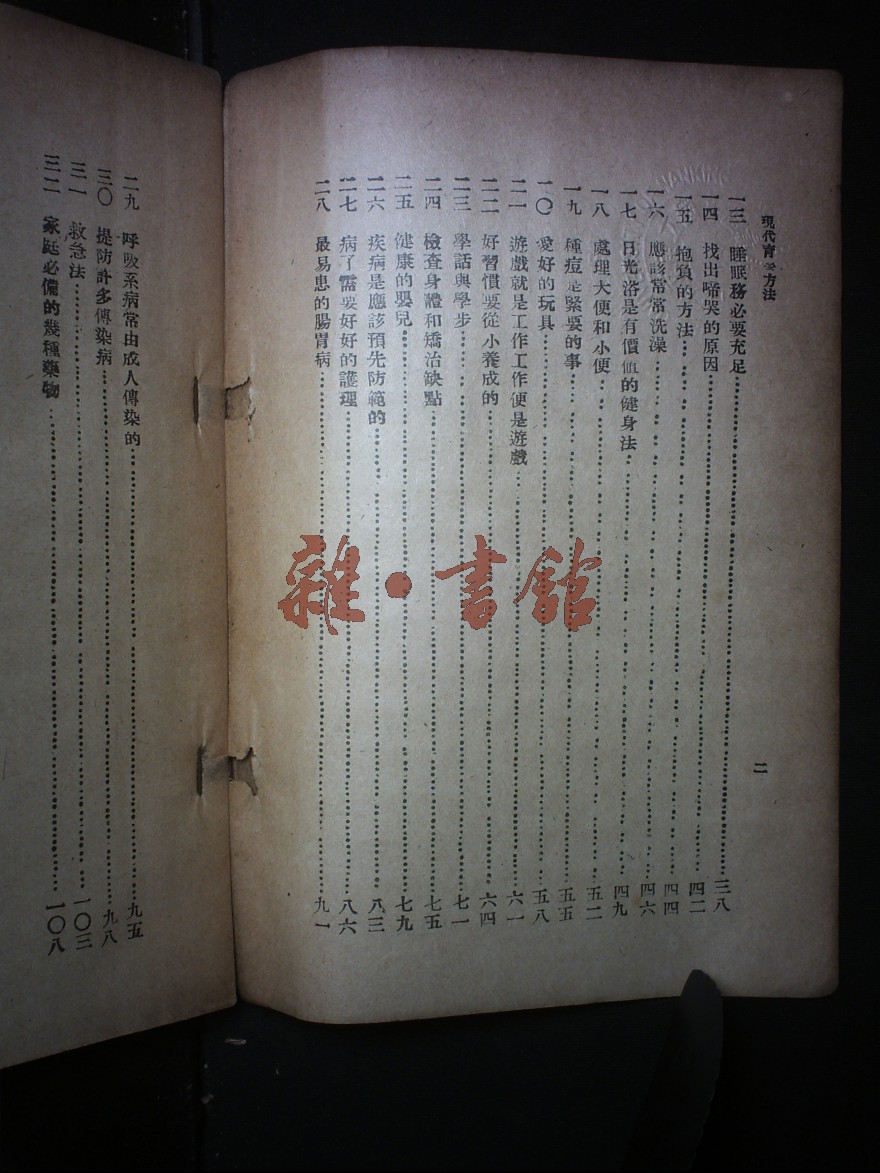 現代育兒方法
一三 睡眠務必要充足……三八
一四 找出啼哭的原因……四二
一五 抱負的方法……四四
一六 應該常常洗澡……四六
一七 日光浴是有價値的健身法……四九
一八 處理大便和小便……五二
一九 種痘是緊要的事……五五
二〇 愛好的玩具……五八
二一 遊戲就是工作工作便是遊戲……六一
二二 好習慣要從小養成的……六四
二三 學話與學步……七一
二四 檢查身體和矯治缺點……七五
二五 健康的嬰兒……七九
二六 疾病是應該預先防範的……八三
二七 病了需要好好的護理……八六
二八 最易患的腸胃病……九一
二
二九 呼吸系病常由成人傳染的……九五
三〇 提防許多傳染病……九八
三一 救急法……一〇三
三二 家庭必備的幾種藥物……一〇八
雜·書館